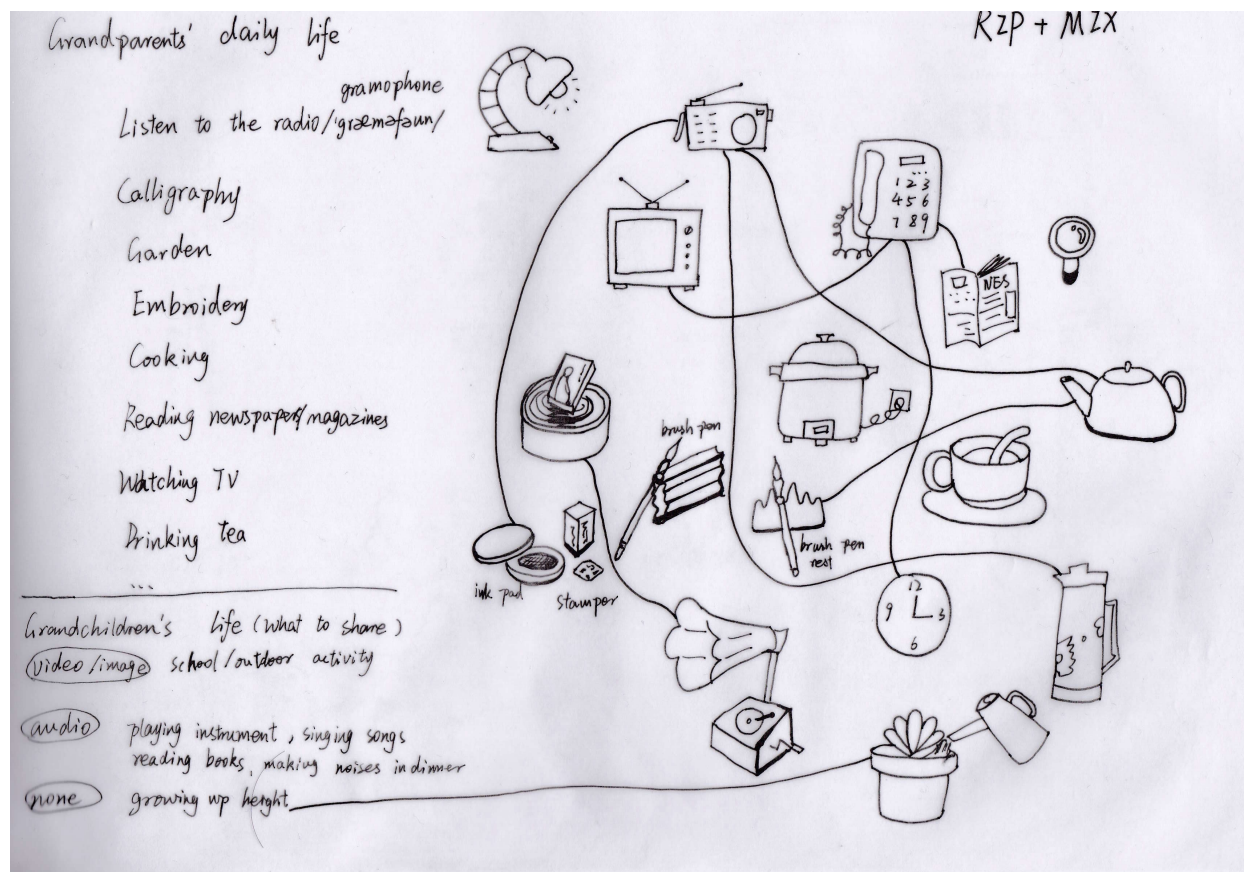 Grandparents' daily life
RIP + MIX
gramophone
Listen to the radio/'græməfəun/
Calligraphy
Garden
Embroidery
Cooking
Reading newspaper/magazines
Watching TV
Drinking tea
...
Grandchildren's life (What to share)
video/image school/outdoor activity
audio playing instrument, singing songs
reading books, making noises in dinner
none growing up height
1 2 3
4 5 6
7 8 9
NES
brush pen
brush pen
rest
ink pad
stamper
12
9 3
6